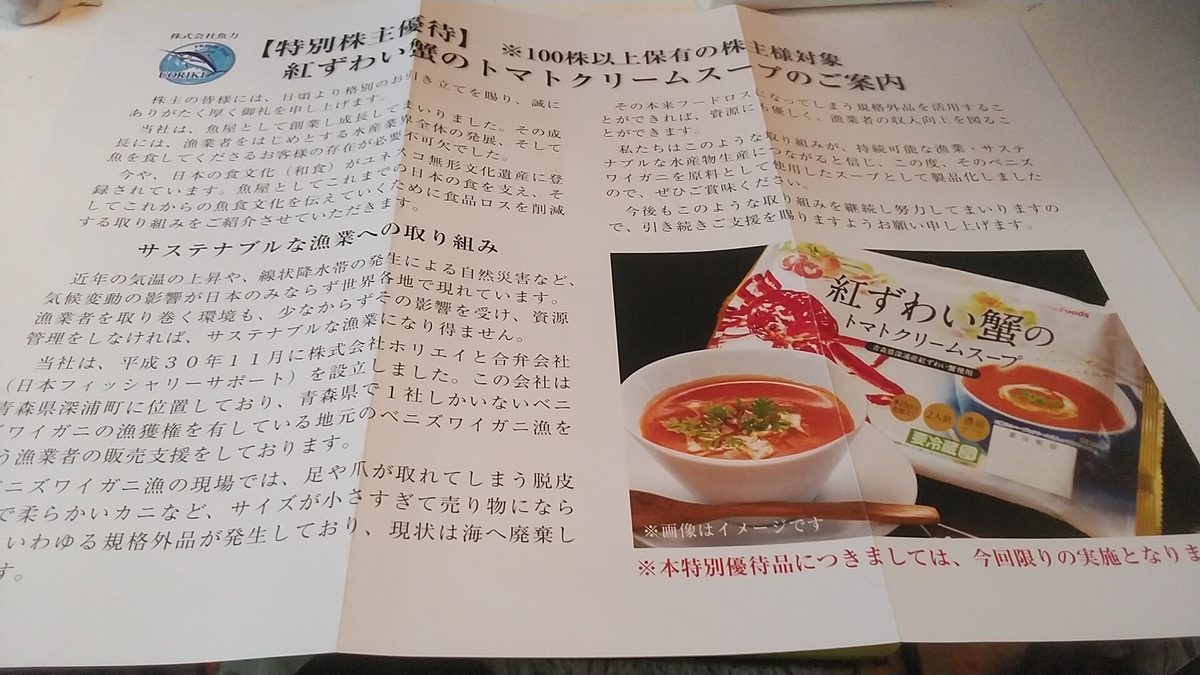 株式会社魚力
UORIKI
【特別株主優待】 ※100株以上保有の株主様対象
紅ずわい蟹のトマトクリームスープのご案内
株主の皆様には、日頃より格別のお引き立てを賜り、誠に
ありがたく厚く御礼を申し上げます。
当社は、魚屋として創業し成長してまいりました。その成
長には、漁業者をはじめとする水産業界全体の発展、そして
魚を食してくださるお客様の存在が必要不可欠でした。
今や、日本の食文化（和食）がユネスコ無形文化遺産に登
録されています。魚屋としてこれまでの日本の食を支え、そ
してこれからの魚食文化を伝えていくために食品ロスを削減
する取り組みをご紹介させていただきます。
サステナブルな漁業への取り組み
近年の気温の上昇や、線状降水帯の発生による自然災害など、
気候変動の影響が日本のみならず世界各地で現れています。
漁業者を取り巻く環境も、少なからずその影響を受け、資源
管理をしなければ、サステナブルな漁業になり得ません。
当社は、平成３０年１１月に株式会社ホリエイと合弁会社
（日本フィッシャリーサポート）を設立しました。この会社は
青森県深浦町に位置しており、青森県で１社しかいないベニ
ズワイガニの漁獲権を有している地元のベニズワイガニ漁を
う漁業者の販売支援をしております。
ニズワイガニ漁の現場では、足や爪が取れてしまう脱皮
で柔らかいカニなど、サイズが小さすぎて売り物になら
いわゆる規格外品が発生しており、現状は海へ廃棄し
す。
その本来フードロスになってしまう規格外品を活用するこ
とができれば、資源にも優しく、漁業者の収入向上を図るこ
とができます。
私たちはこのような取り組みが、持続可能な漁業・サステ
ナブルな水産物生産につながると信じ、この度、そのベニズ
ワイガニを原料として使用したスープとして製品化しました
ので、ぜひご賞味ください。
今後もこのような取り組みを継続し努力してまいりますの
で、引き続きご支援を賜りますようお願い申し上げます。
紅ずわい蟹の
トマトクリームスープ
青森県深浦産紅ずわい蟹使用
2人前
要冷蔵
※画像はイメージです
※本特別優待品につきましては、今回限りの実施となりま